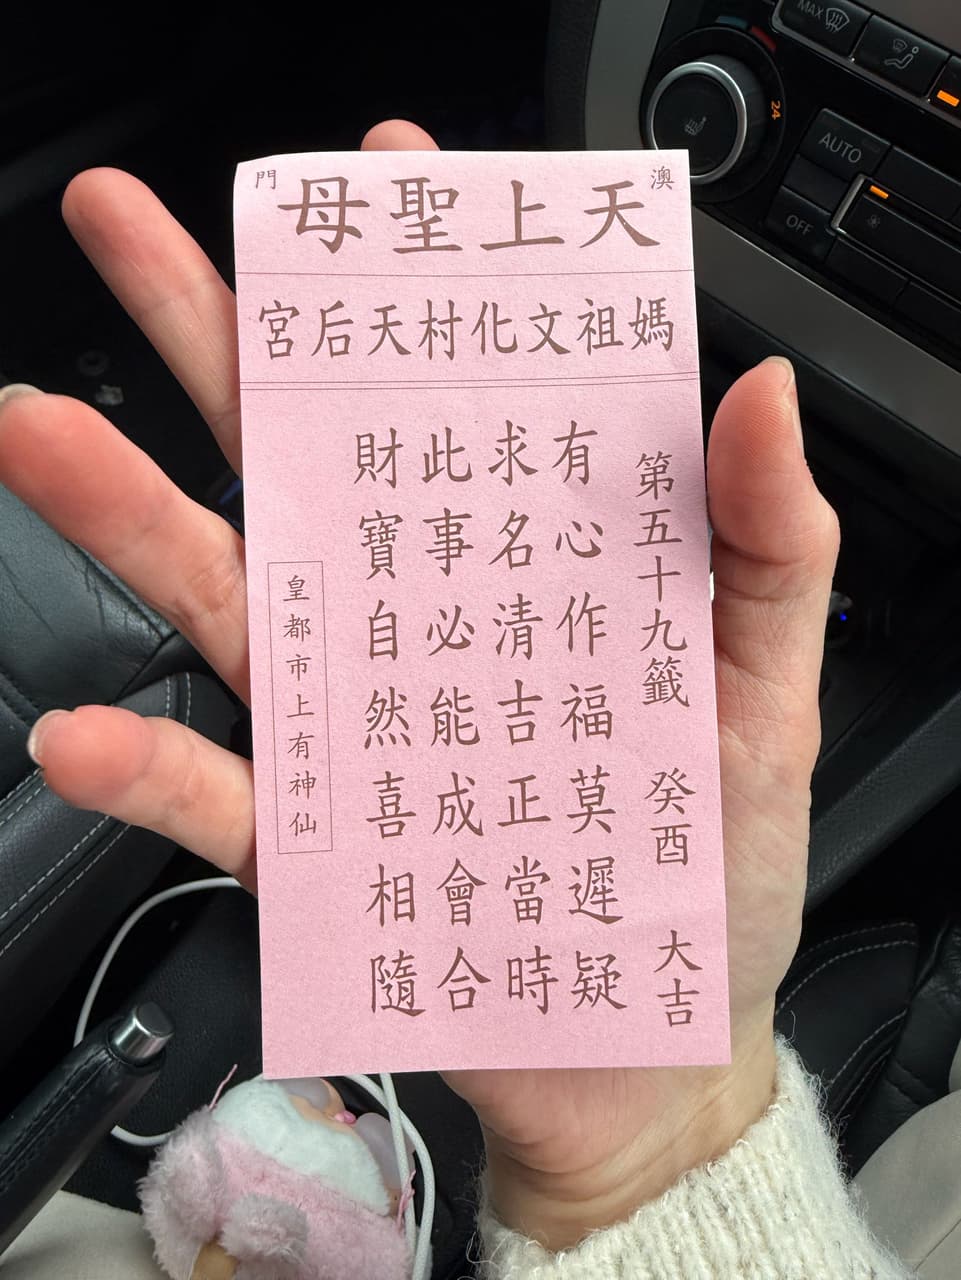 澳門
天上聖母
媽祖文化村天后宮
第五十九籤 癸酉 大吉
有心作福莫遲疑
求名清吉正當時
此事必能成會合
財寶自然喜相隨
皇都市上有神仙
MAX
24
AUTO
OFF